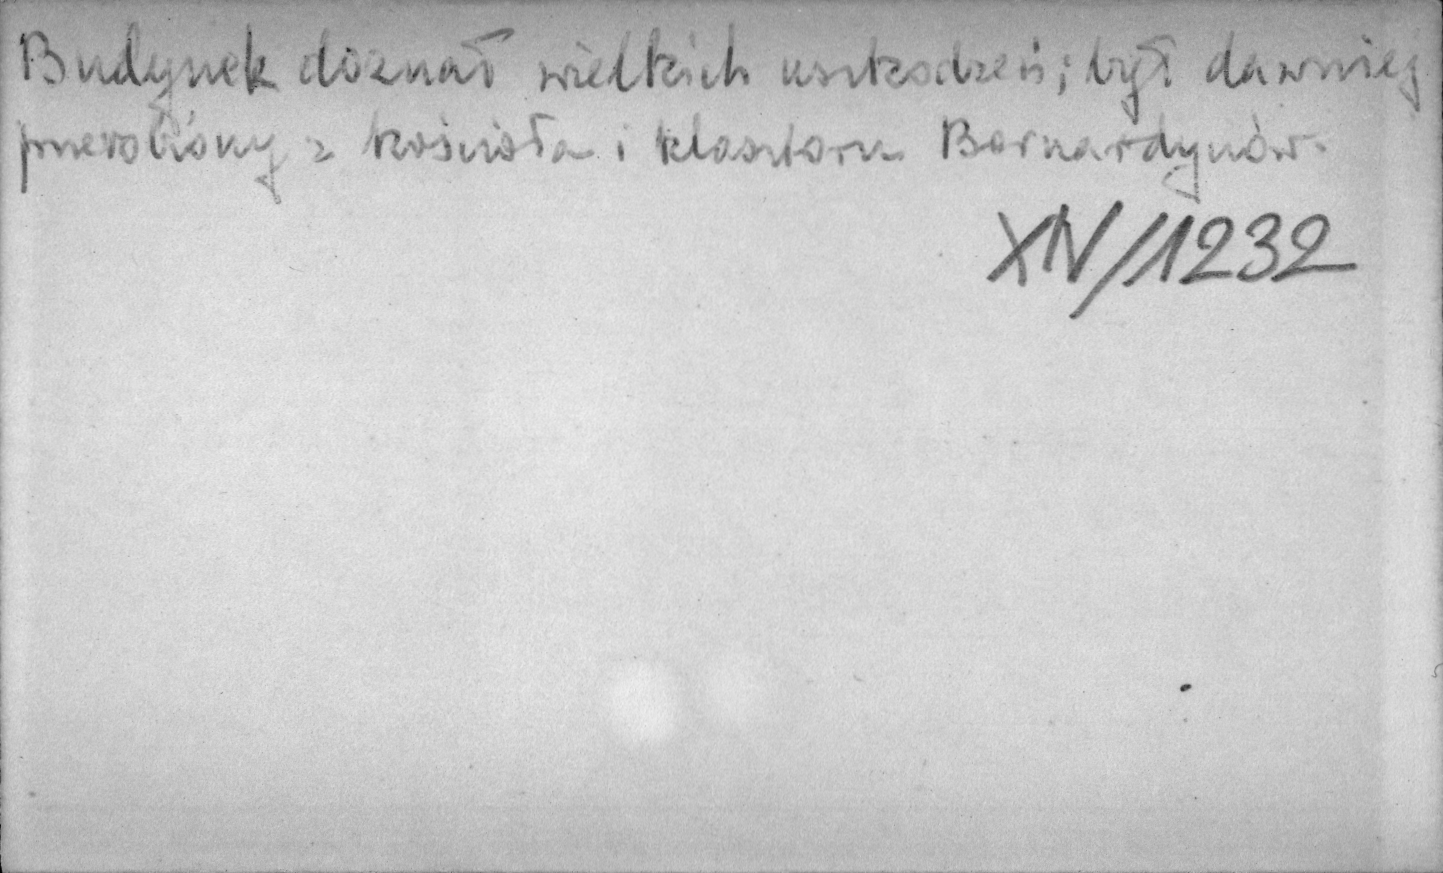 Budynek doznał wielkich uszkodzeń; był dawniej
przerobiony z kościoła i klasztoru Bernardynów.
XIV/1232